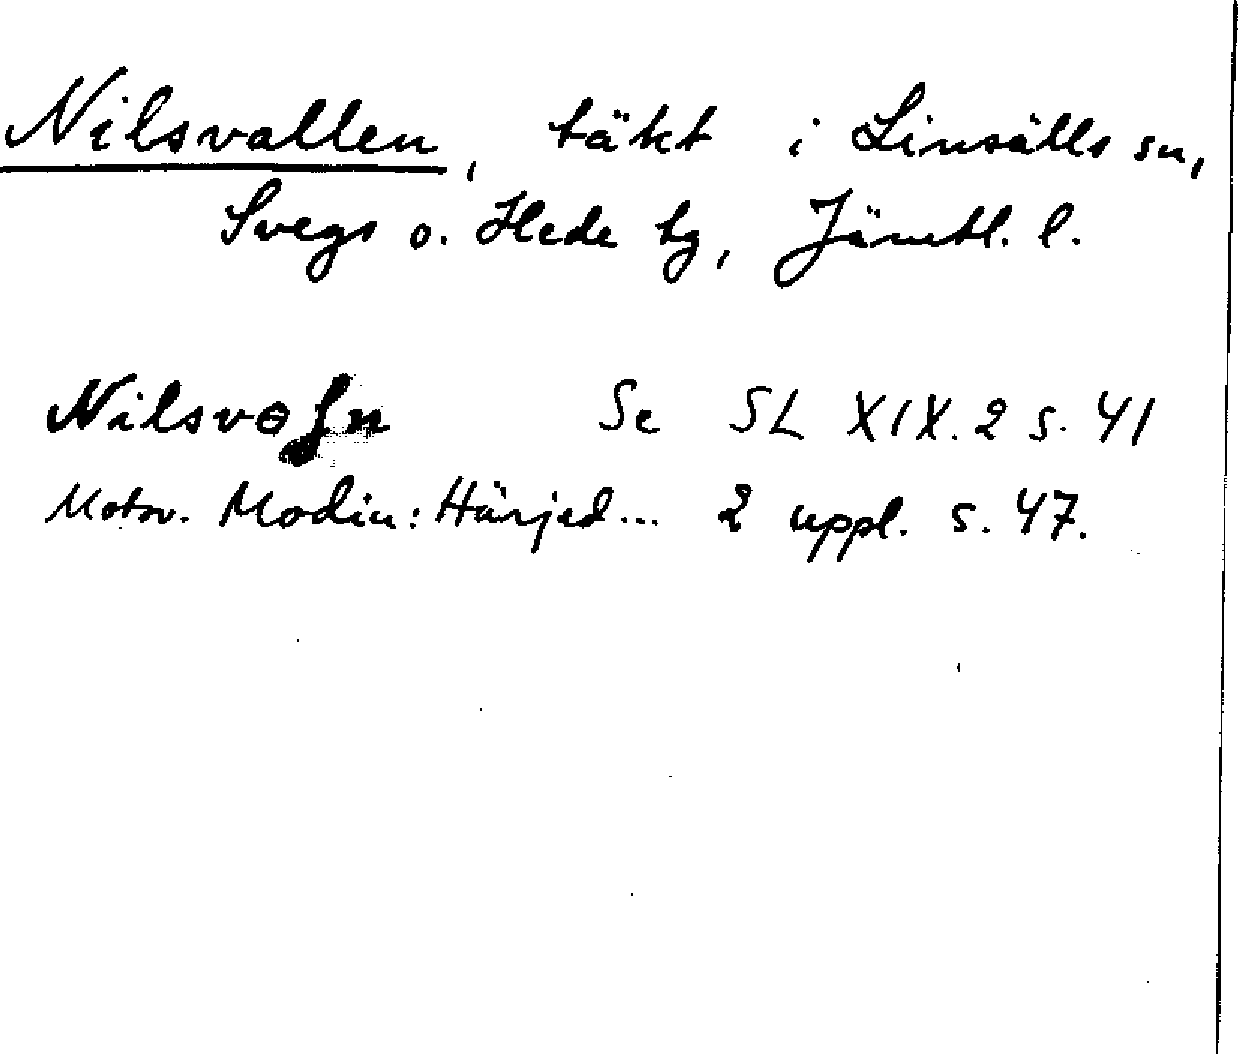 Nilsvallen, täkt i Linsälls sn,
Svegs o. Hede tg, Jämtl. l.
Se SL XIX.2 s. 41
Motsv. Modin: Härjed... 2 uppl. s. 47.